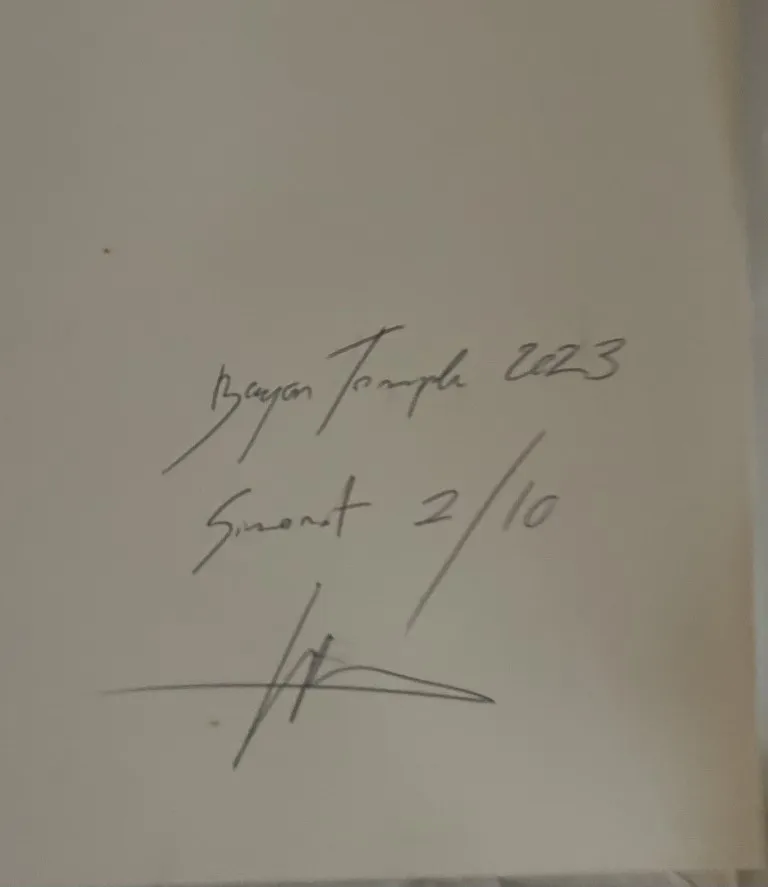 Bayon Temple 2023
Simonet 2/10